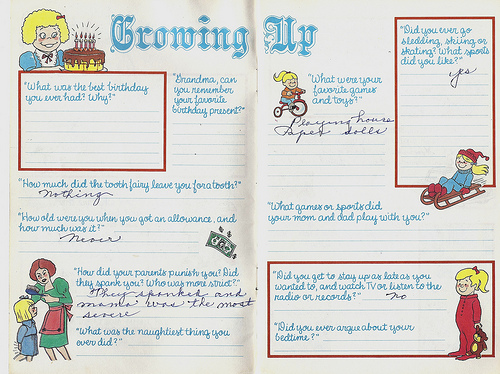 Growing Up
"What was the best birthday
you ever had? Why?"
"Grandma, can
you remember
your favorite
birthday present?"
"How much did the tooth fairy leave you for a tooth?"
Nothing
"How old were you when you got an allowance, and
how much was it?"
Never
"How did your parents punish you? Did
they spank you? Who was more strict?"
They spanked and
mama was the most
severe
"What was the naughtiest thing you
ever did?"
"What were your
favorite games
and toys?"
Playing house
Paper dolls
"Did you ever go
sledding, skiing or
skating? What sports
did you like?"
yes
"What games or sports did
your mom and dad play with you?"
"Did you get to stay up as late as you
wanted to, and watch TV or listen to the
radio or records?"
no
"Did you ever argue about your
bedtime?"